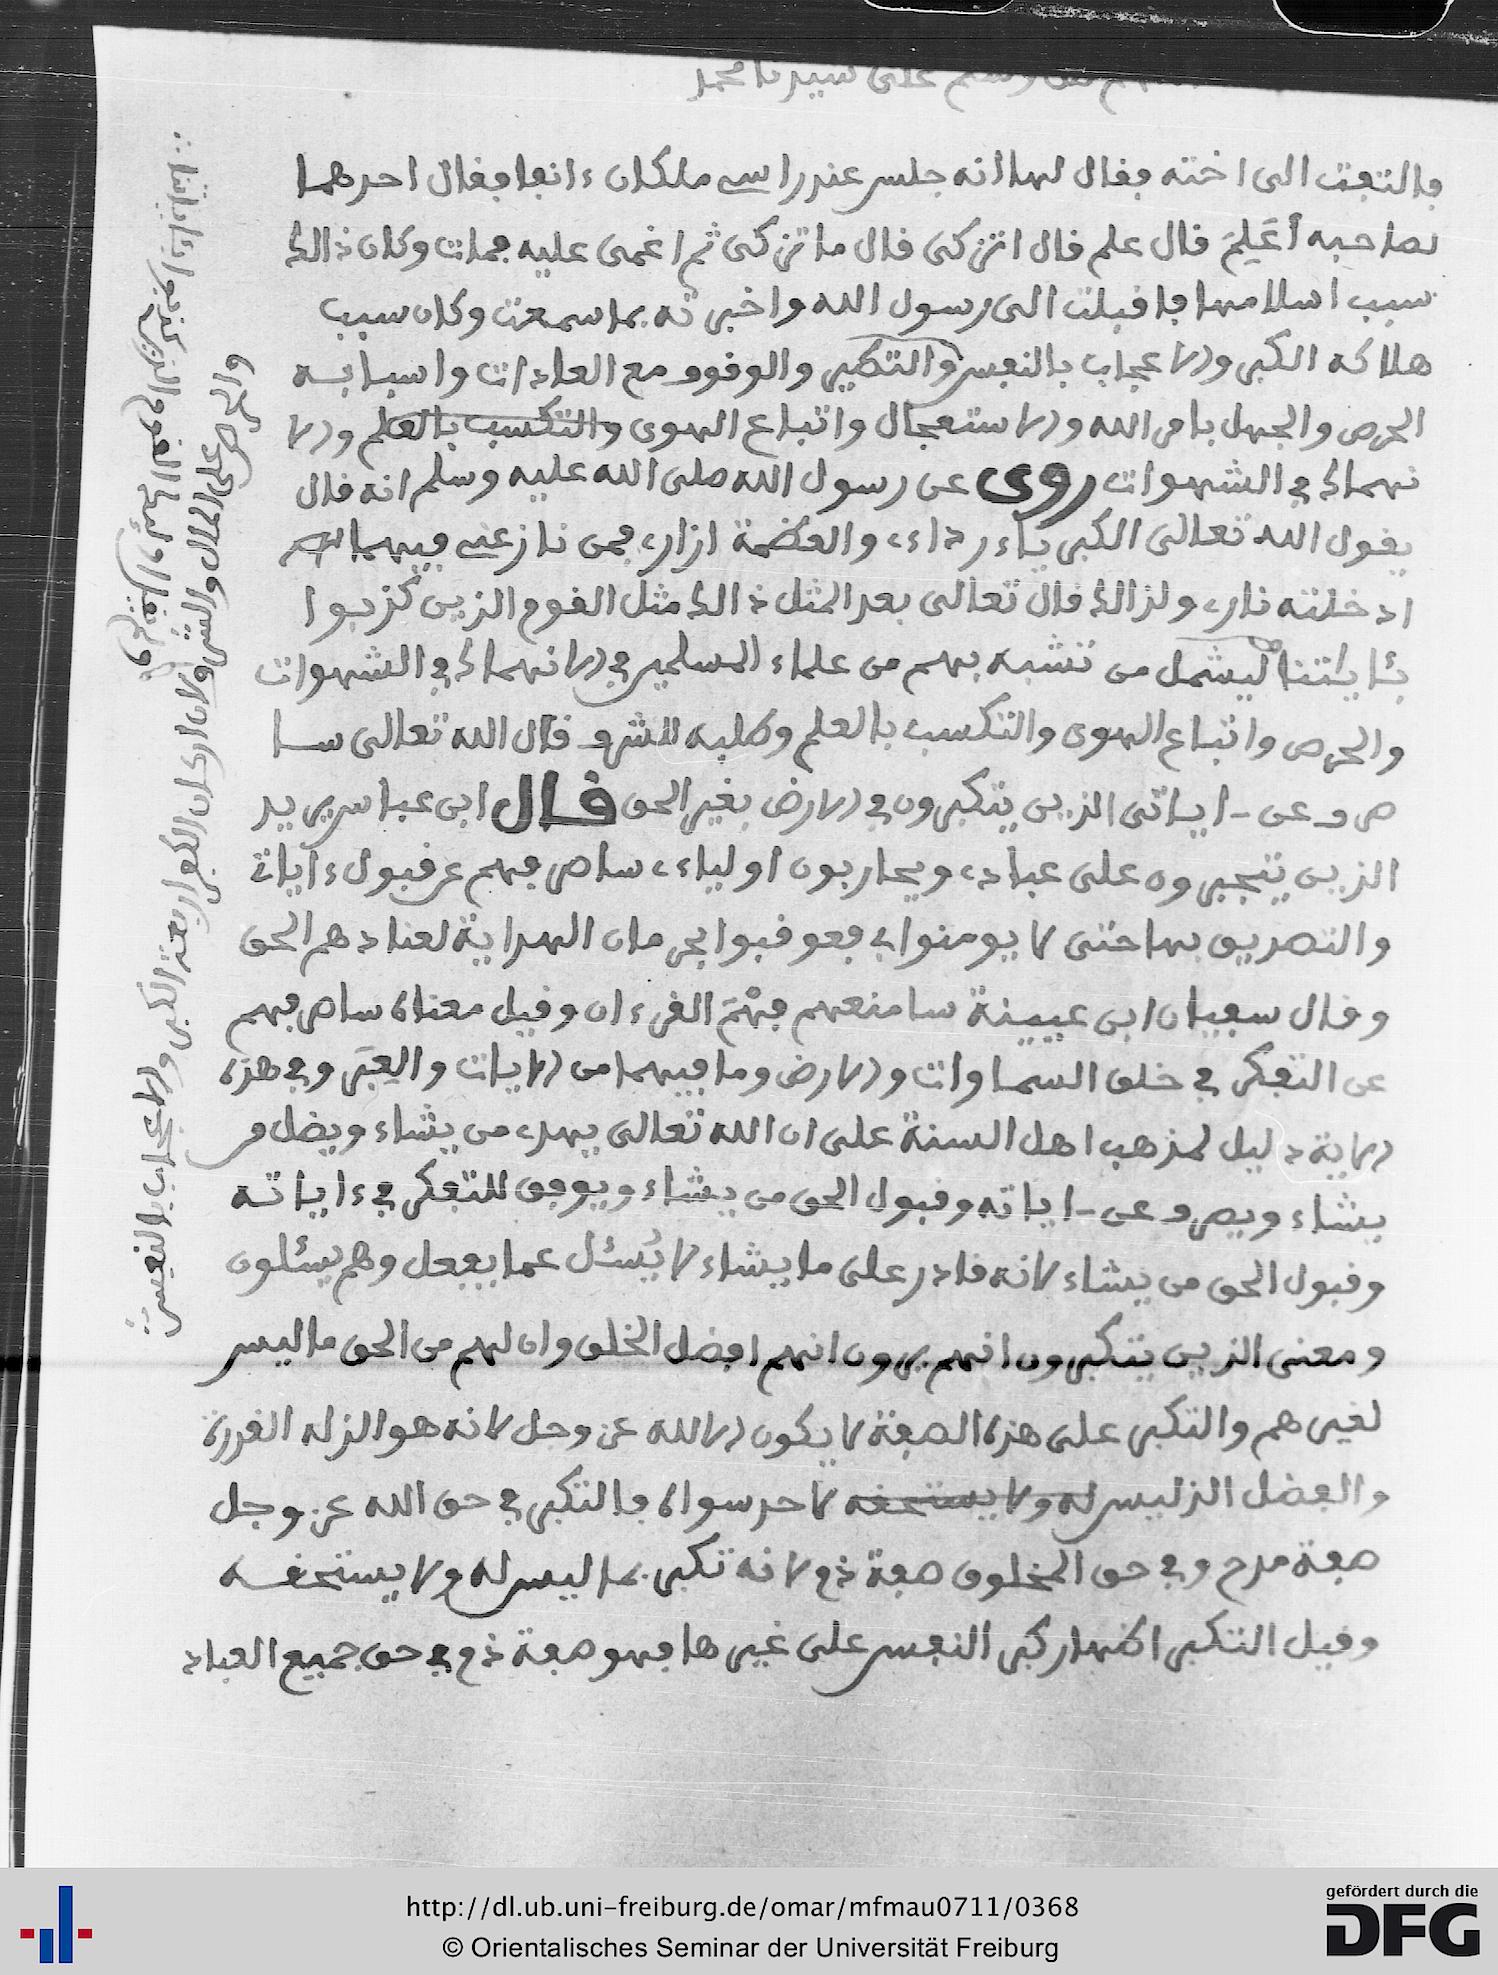 على سيدنا محمد
فالتفت الى اخته فقال لها انه جلس عند راسي ملكان ءانفا فقال احدهما
لصاحبه أعَلِمَ قال علم قال اتزكى قال ما تزكى ثم اغمى عليه فمات وكان ذالك
سبب اسلامها فاقبلت الى رسول الله واخبرته بما سمعت وكان سبب
هلاكه الكبر والاعجاب بالنفس والتكبر والوقوف مع العادات واسبابه
الحرص والجهل بامر الله والاستعجال واتباع الهوى والتكسب بالعلم والا
نهماك في الشهوات روى عن رسول الله صلى الله عليه وسلم انه قال
يقول الله تعالى الكبرياء رداءي والعظمة ازاري فمن نازعني فيهما
ادخلته ناري ولذالك قال تعالى بعد المثل ذالك مثل القوم الذين كذبوا
بئاياتنا ليشمل من تشبه بهم من علماء المسلمين في الانهماك في الشهوات
والحرص واتباع الهوى والتكسب بالعلم وطلبه للشرف قال الله تعالى سا
صرف عن ءاياتى الذين يتكبرون في الارض بغير الحق قال ابن عباس يريد
الذين يتجبرون على عبادي ويحاربون اولياءي ساصرفهم عن قبول ءاياتى
والتصديق بها حتى لا يومنوا بي فعوقبوا بحرمان الهداية لعنادهم الحق
وقال سفيان ابن عيينة سامنعهم فهْمَ القرءان وقيل معناه ساصرفهم
عن التفكر في خلق السماوات والارض وما فيهما من الايات والعِبَر وفي هذه
الاية دليل لمذهب اهل السنة على ان الله تعالى يهدي من يشاء ويضل من
يشاء ويصرف عن ءاياته وقبول الحق من يشاء ويوفق للتفكر في ءاياته
وقبول الحق من يشاء لانه قادر على ما يشاء لا يُسئل عما يفعل وهم يسئلون
ومعنى الذين يتكبرون انهم يرون انهم افضل الخلق وان لهم من الحق ما ليس
لغيرهم والتكبر على هذه الصفة لا يكون الا لله عز وجل لانه هو الذي له القدرة
والفضل الذي ليس له ولا يستحقه لاحد سواه فالتكبر في حق الله عز وجل
صفة مدح وفي حق المخلوق صفة ذم لانه تكبر بما ليس له ولا يستحقه
وقيل التكبر اظهار كبر النفس على غيرها فهو صفة ذم في حق جميع العباد
القوم الذين كذبوا بئاياتنا
ولان اركان الكفر اربعة الكبر والاعجاب بالنفس
http://dl.ub.uni-freiburg.de/omar/mfmau0711/0368
© Orientalisches Seminar der Universität Freiburg
gefördert durch die
DFG